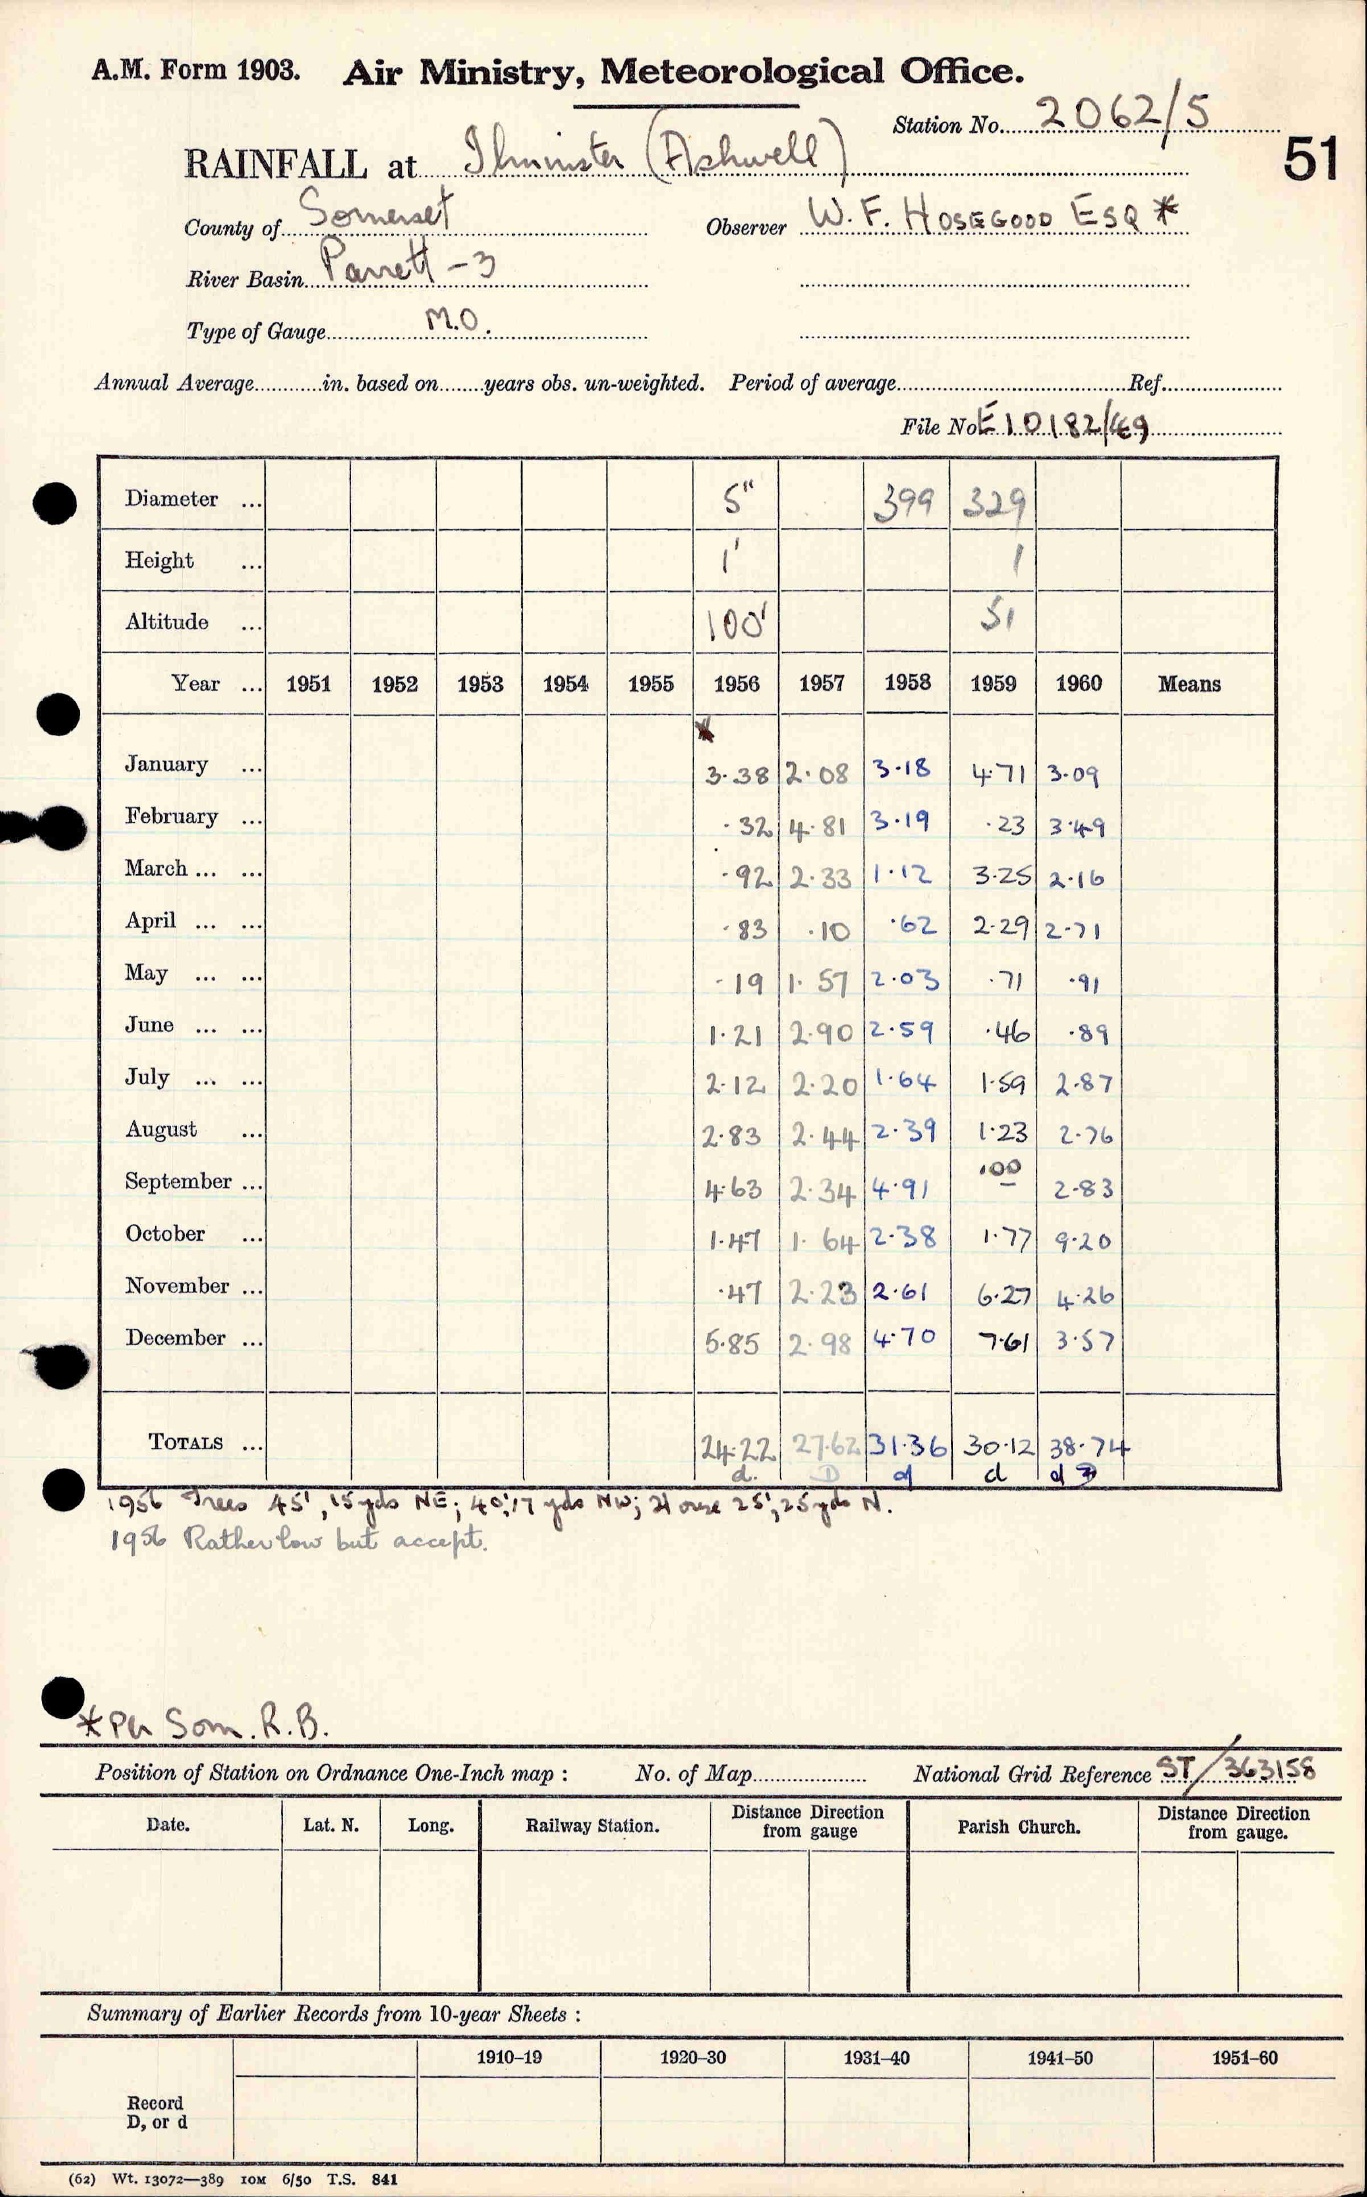 A.M. Form 1903. Air Ministry, Meteorological Office.
Station No. 2062/5
51
RAINFALL at Ilminster (Ashwell)
County of Somerset Observer W. F. HOSEGOOD ESQ *
River Basin Parrett - 3
Type of Gauge M.O.
Annual Average in. based on years obs. un-weighted. Period of average Ref.
File No E10182/49
Diameter ... 5" 399 329
Height ... 1' 1
Altitude ... 100' 51
Year ... 1951 1952 1953 1954 1955 1956 1957 1958 1959 1960 Means
*
January ... 3.38 2.08 3.18 4.71 3.09
February ... .32 4.81 3.19 .23 3.49
March ... ... .92 2.33 1.12 3.25 2.16
April ... ... .83 .10 .62 2.29 2.71
May ... ... .19 1.57 2.03 .71 .91
June ... ... 1.21 2.90 2.59 .46 .89
July ... ... 2.12 2.20 1.64 1.59 2.87
August ... 2.83 2.44 2.39 1.23 2.76
September ... 4.63 2.34 4.91 .00 2.83
October ... 1.47 1.64 2.38 1.77 9.20
November ... .47 2.23 2.61 6.27 4.26
December ... 5.85 2.98 4.70 7.61 3.57
TOTALS ... 24.22 27.62 31.36 30.12 38.74
d. D d d d
1956 Trees 45', 15 yds NE; 40', 17 yds NW; House 25', 25 yds N.
1956 Rather low but accept.
*Per Som. R.B.
Position of Station on Ordnance One-Inch map : No. of Map National Grid Reference ST/363158
Date. Lat. N. Long. Railway Station. Distance Direction from gauge Parish Church. Distance Direction from gauge.
Summary of Earlier Records from 10-year Sheets :
1910–19 1920–30 1931–40 1941–50 1951–60
Record
D, or d
(62) Wt. 13072—389 IOM 6/50 T.S. 841